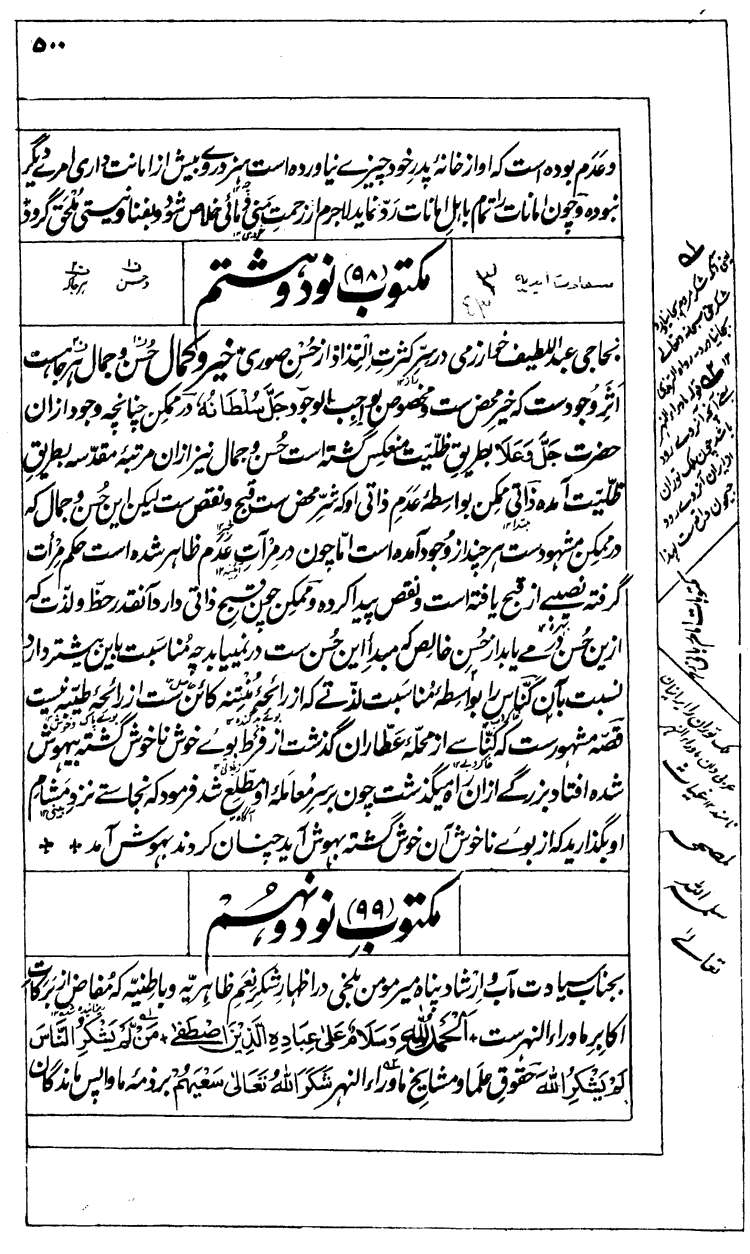 ۵۰۰
وعدم بوده است که او از خانهٔ پدر خود چیزے نیاورده است هنر درو بیش از امانت داری امرے دیگر
نبوده و چون امانات را تمام باهل امانات ردّ نماید لاجرم از زحمت منی و مائی خلاص شود و بفنا و نیستی ملحق گردد
مکتوب (۹۸) نود و هشتم
بحاجی عبد اللطیف خوارزمی در سرّ کثرت التذاذ از حُسن صوری خیر و کمال حُسن و جمال هر جا هست
اثر وجود ست که خیر محض ست و مخصوص بواجب الوجود جلّ سُلطانهٗ در ممکن چنانچه وجود از ان
حضرت جلّ وعَلا بطریق ظلّیت منعکس گشته است حُسن و جمال نیز از ان مرتبهٔ مقدّسه بطریق
ظلّیت آمده ذاتی ممکن بواسطهٔ عدم ذاتی او که شرّ محض ست قبح و نقص ست لیکن این حُسن و جمال که
در ممکن مشهود ست هر چند از وجود آمده است امّا چون در مرآت عدم ظاهر شده است حکم مرآت
گرفته نصیبے از قبح یافته است و نقص پیدا کرده و ممکن چون قبح ذاتی دارد آنقدر حظّ و لذّت که
ازین حُسن در مے یابد از حُسن خالص که مبدأ این حُسن ست در نمی یابد چه مُناسبت باین بیشتر دارد
نسبت بآن کنّاس را بواسطهٔ مُناسبت لذّتے که از رائحهٔ مُنتنه کائن ست از رائحهٔ طیّبه نیست
قصّه مشهور ست که کنّاسے از محلّهٔ عطّاران گذشت از فرط بوے خوش ناخوش گشته بیهوش
شده افتاد بزرگے از ان راه میگذشت چون بر سر معاملهٔ او مطّلع شد فرمود که نجاستے نزد مشام
او بگذارید که از بوے ناخوش آن خوش گشته بهوش آید چنان کردند بهوش آمد ++
مکتوب (۹۹) نود و نهم
بجناب سیادت مآب و ارشاد پناه میر مومن بلخی در اظهار شکر نعم ظاهریّه و باطنیه که مُفاض از برکات
اکابر ماوراء النهر ست + اَلحَمدُ لِلّٰهِ وَسَلَامٌ عَلیٰ عِبَادِهِ الَّذِینَ اصْطَفیٰ + مَنْ لَمْ یَشْکُرِ النَّاسَ
لَمْ یَشْکُرِ اللهَ حقوق علما و مشایخ ماوراء النهر شَکَرَ اللهُ تَعَالیٰ سَعْیَهُمْ بر ذمّهٔ ما واپس ماندگان
مکتوبات امام ربانی